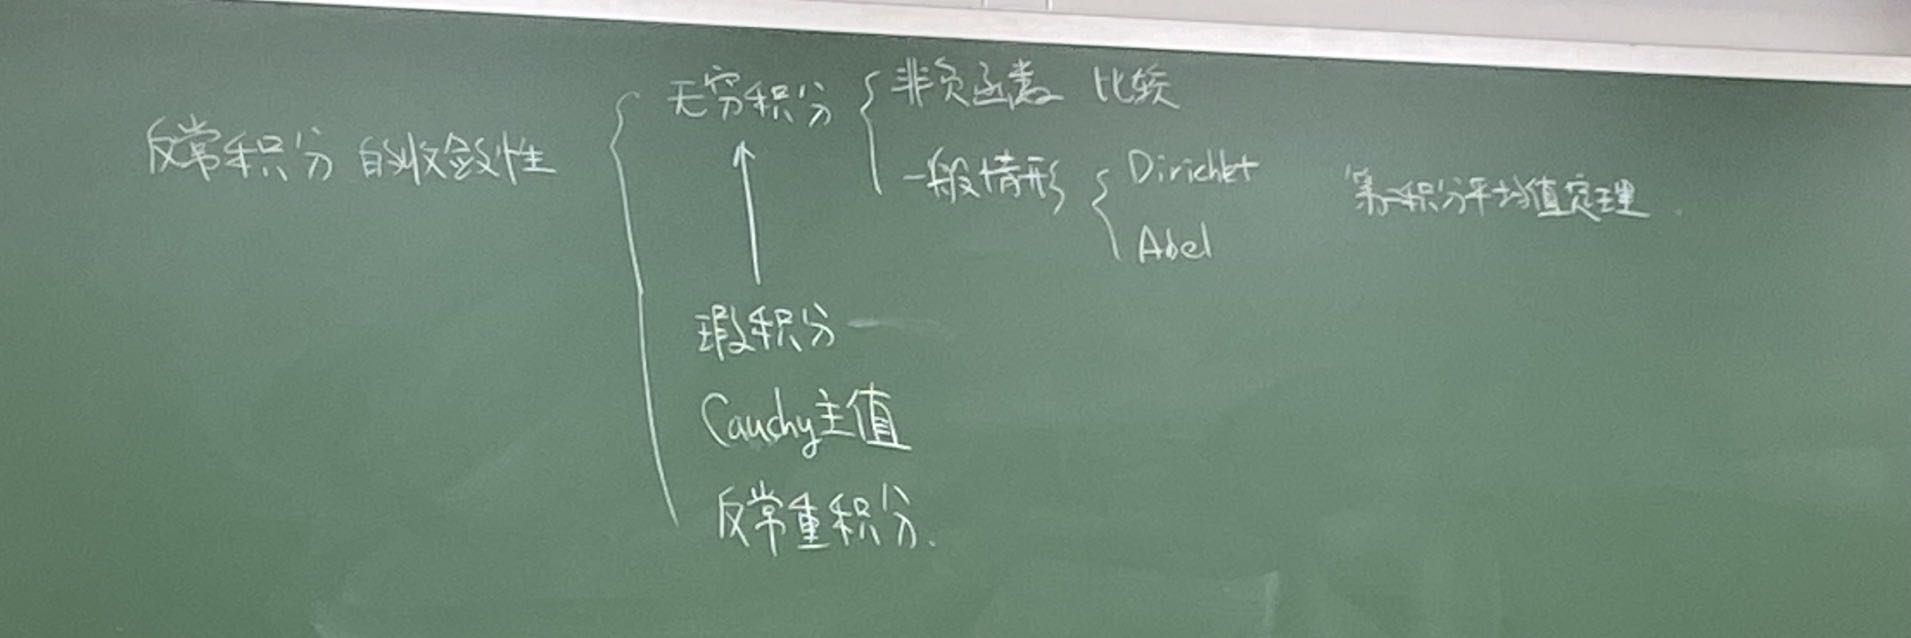 反常积分 的收敛性
无穷积分
非负函数 比较
一般情形
Dirichlet
Abel
积分平均值定理
瑕积分
Cauchy主值
反常重积分.